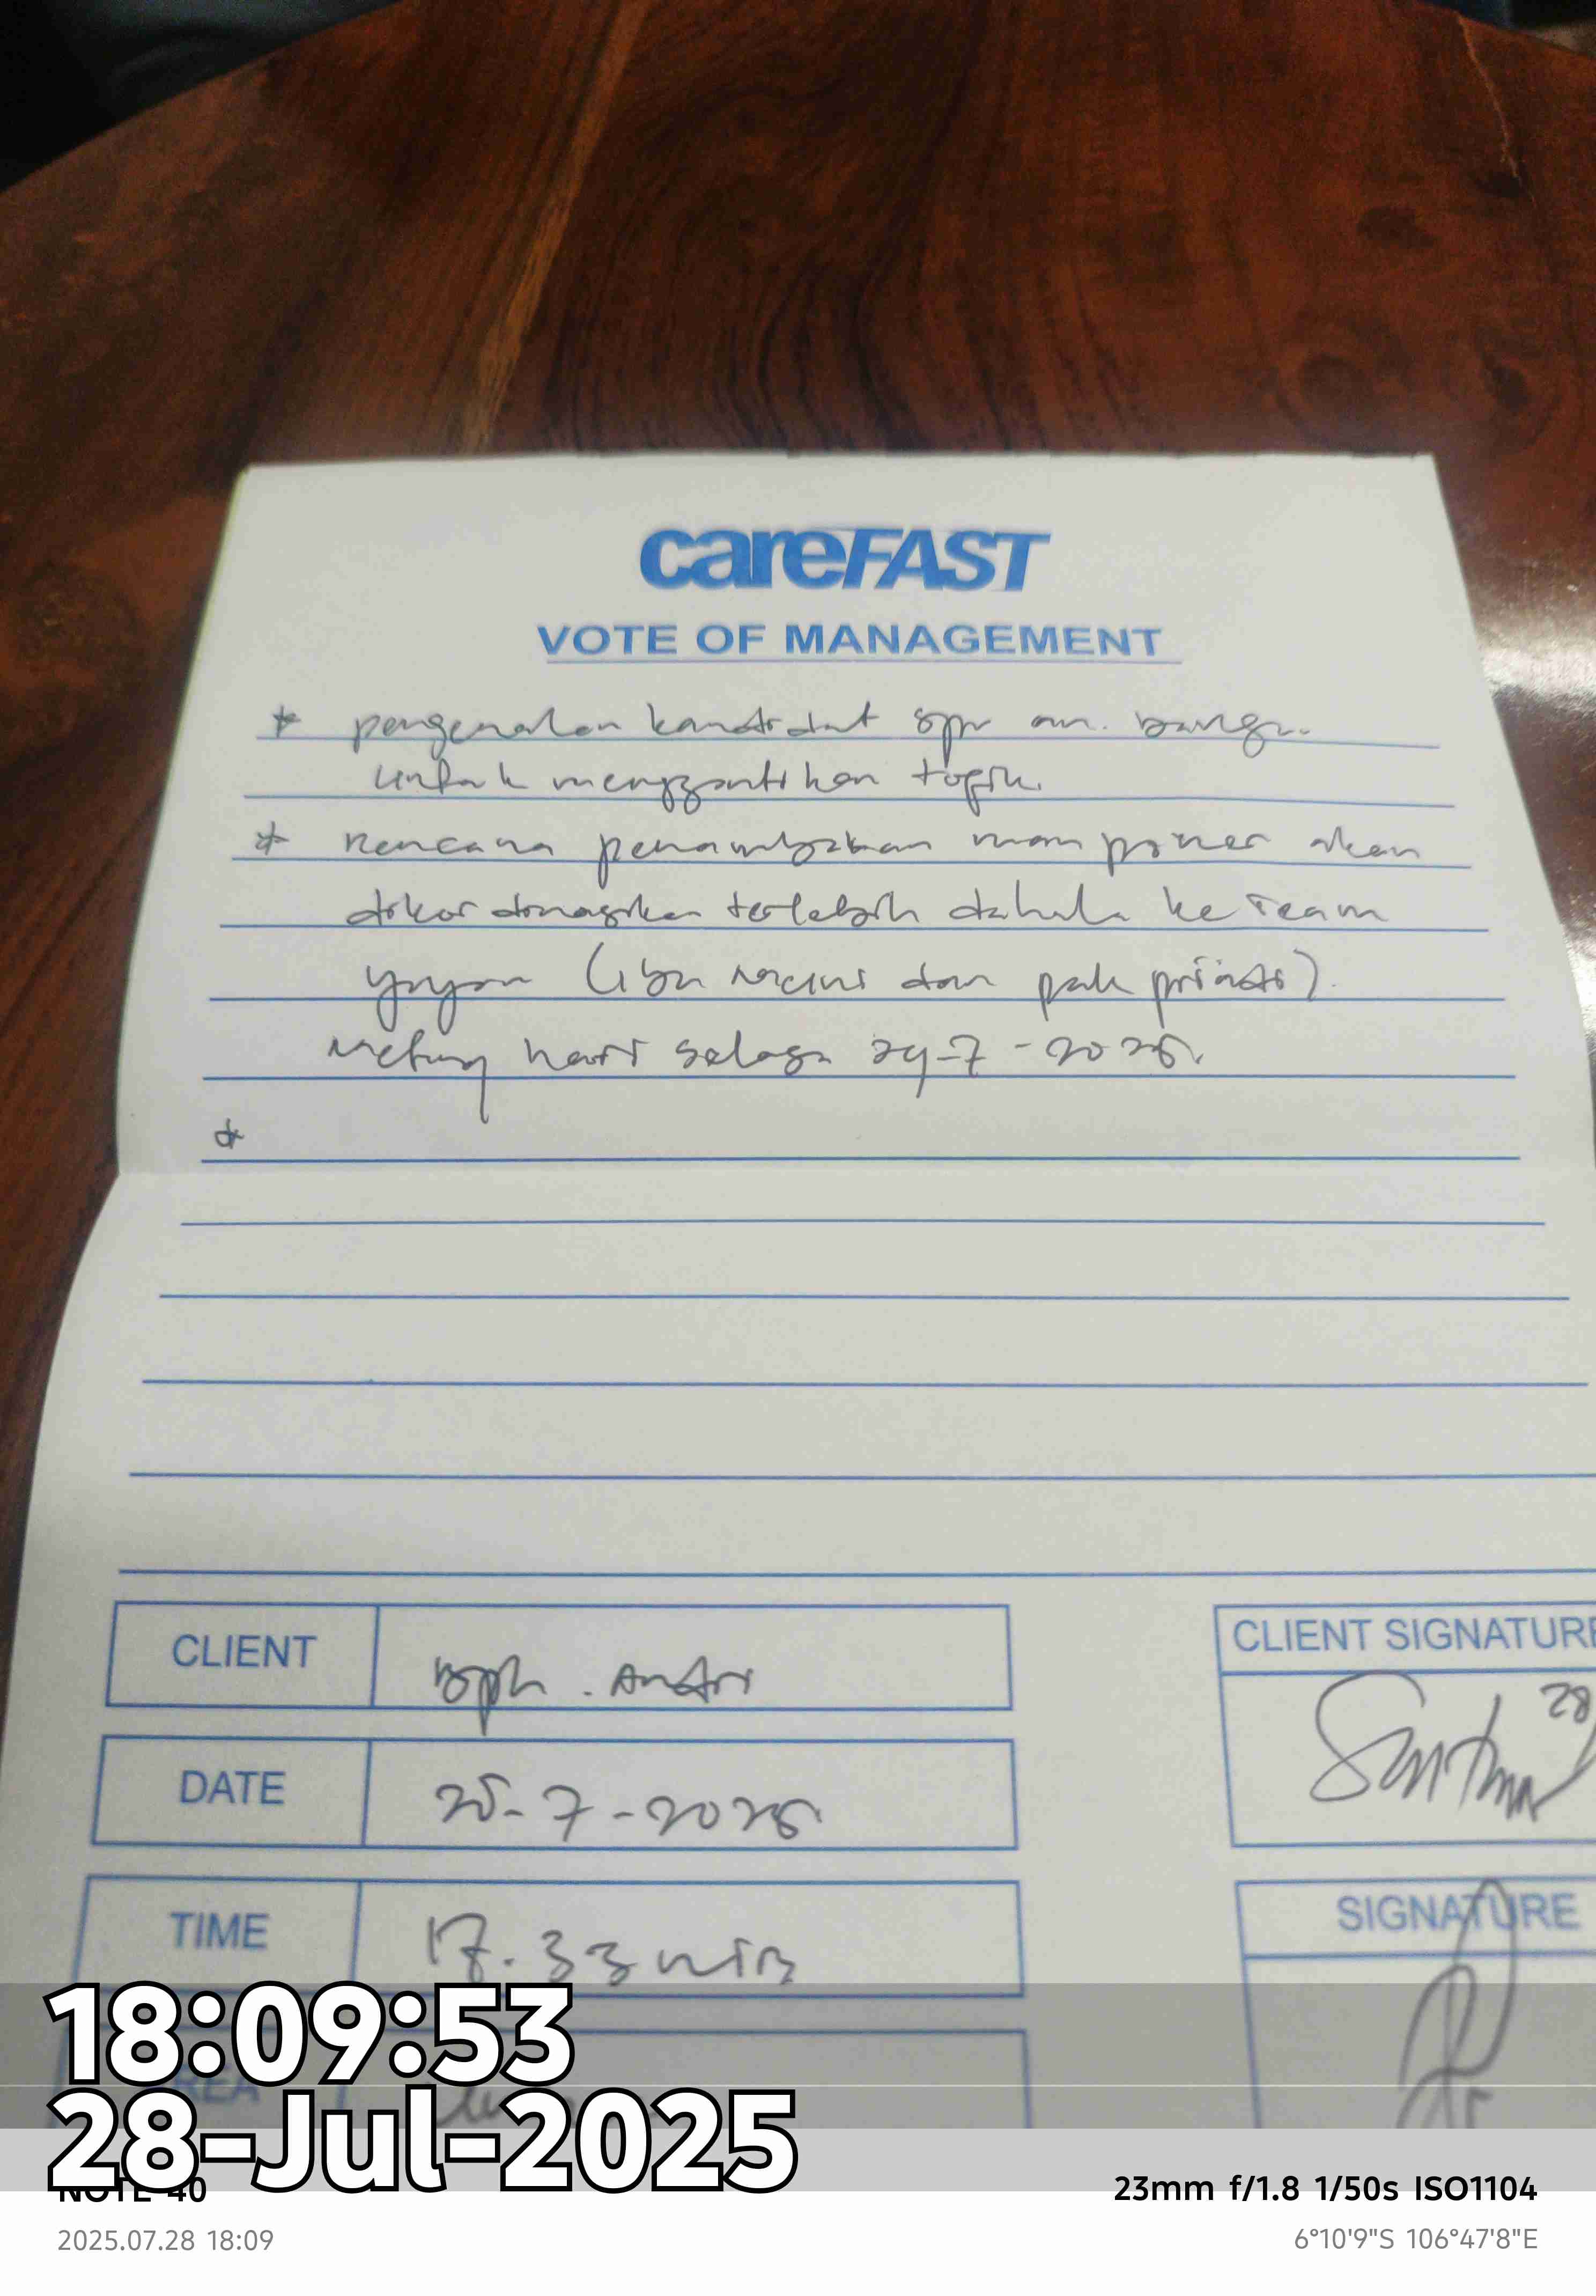 careFAST
VOTE OF MANAGEMENT
* pengenalan kandidat spv an.
untuk menggantikan
* Rencana penambahan man power akan
dikordinasikan terlebih dahulu ke Team
yayan (ibu dan pak
Meting hari selasa 29-7-2025.
*
CLIENT
Bpk. Andri
CLIENT SIGNATURE
28
DATE
-7-2025
TIME
17.33 WIB
SIGNATURE
18:09:53
28-Jul-2025
NOTE 40
23mm f/1.8 1/50s ISO1104
2025.07.28 18:09
6°10'9"S 106°47'8"E